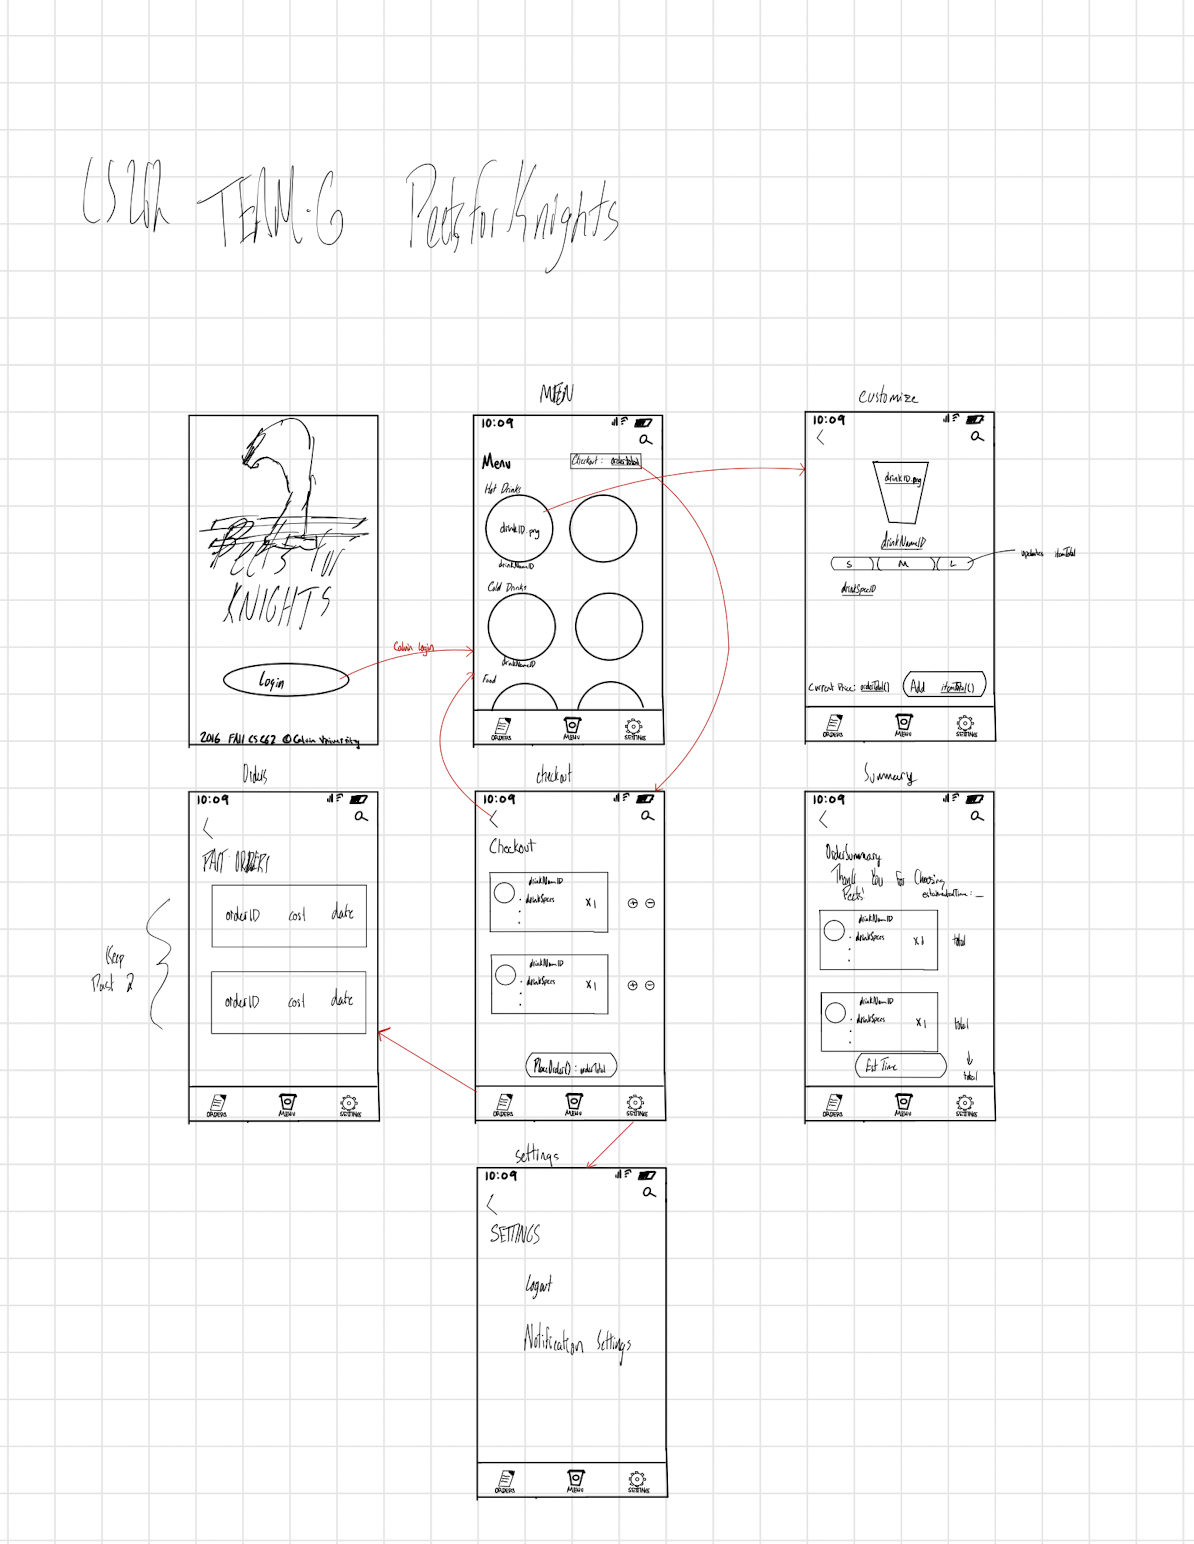 CS262 TEAM-G Peets for Knights
Peets for
KNIGHTS
Login
2016 FAll CS 262 © Calvin University
Calvin Login
MEEN
10:09
Menu
Checkout: orderTotal
Hot Drinks
drinkID.png
drinkNameID
Cold Drinks
drinkNameID
Food
ORDERS MENU SETTINGS
customize
10:09
drinkID.png
drinkNameID
S M L
updates itemTotal
drinkSpecID
Current Price: orderTotal()
Add itemTotal()
ORDERS MENU SETTINGS
Orders
10:09
PAST ORDERS
orderID cost date
orderID cost date
Keep
Past 2
ORDERS MENU SETTINGS
checkout
10:09
Checkout
drinkNameID
• drinkSpecs x1
drinkNameID
• drinkSpecs x1
PlaceOrder() : orderTotal
ORDERS MENU SETTINGS
Summary
10:09
OrderSummary
Thank You For Choosing
Peets!
estimatedTime: _
drinkNameID
• drinkSpecs x1 total
drinkNameID
• drinkSpecs x1 total
Est Time
total
ORDERS MENU SETTINGS
settings
10:09
SETTINGS
Logout
Notification Settings
ORDERS MENU SETTINGS